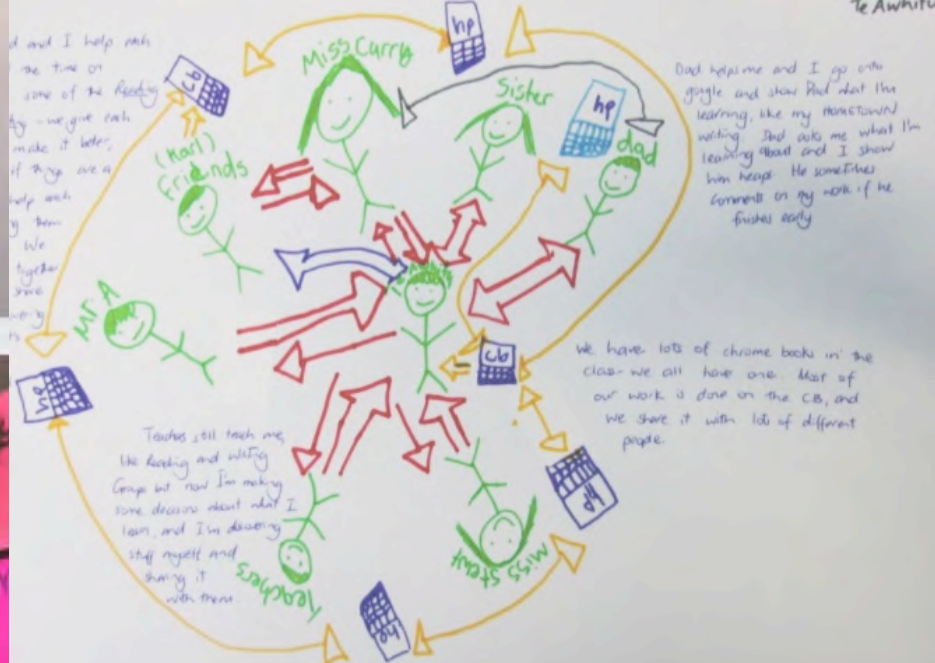 Te Awhitu
d and I help each
the time on
some of the Reading
- we give each
make it better,
if things are a
help each
them
We
together
share
Miss Curry
hp
cb
Sister
hp
dad
(Karl)
friends
Mr A
hp
cb
hp
hp
Teachers
Miss
Dad helps me and I go onto
google and show Dad what I'm
learning, like my HOMETOWN
writing. Dad asks me what I'm
learning about and I show
him heaps. He sometimes
comments on my work if he
finishes early
We have lots of chrome books in the
class - we all have one. Most of
our work is done on the CB, and
we share it with lots of different
people.
Teachers still teach me,
like Reading and Writing
Groups but now I'm making
some decisions about what I
learn, and I'm discovering
stuff myself and
sharing it
with them.